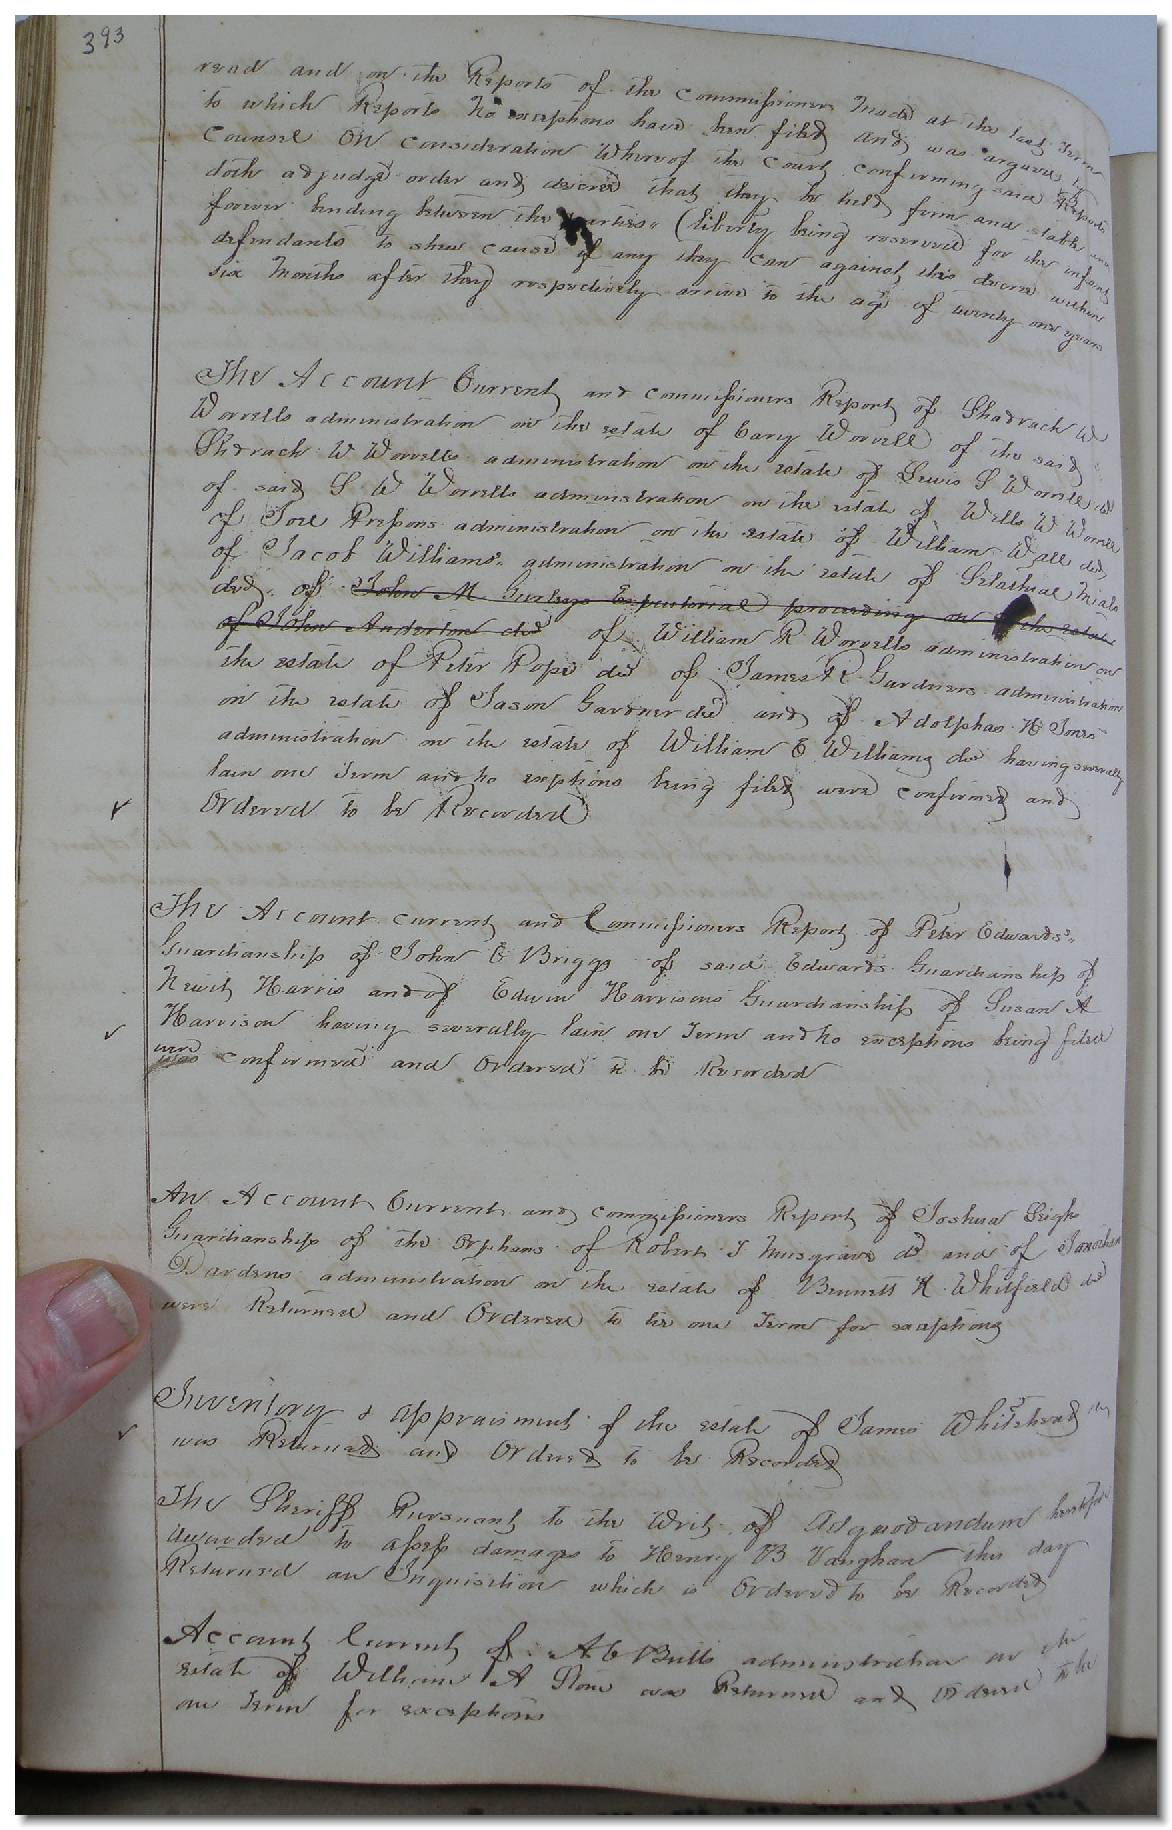 393
read and on the Reports of the Commissioners made at the last Term
to which Reports no exceptions have been filed and was argued by
Counsel On Consideration Whereof the Court confirming said Reports
doth adjudge order and decree that they be held firm and stable and
forever binding between the parties (liberty being reserved for the infant
defendants to shew cause if any they can against this decree within
six months after they respectively arrive to the age of twenty one years
The Account Current and commissioners Report of Shadrach W
Worrells administration on the estate of Cary Worrell of the said
Shadrach W Worrells administration on the estate of Lewis S Worrell decd
of said S W Worrells administration on the estate of Wells W Worrell
of Joel Pressons administration on the estate of William Wall decd,
of Jacob Williams administration on the estate of Selathiel Mials
decd. of John M Gurleys Executorial proceeding on the estate
of John Anderton decd of William R Worrells administration on
the estate of Peter Pope decd of James R Gardners administration
on the estate of Jason Gardner decd and of Adolphas H Jones
administration on the estate of William E Williams decd having severally
lain one Term and no exeptions being filed were confirmed and
Ordered to be Recorded
The Account current and Commissioners Report of Peter Edwards's
Guardianship of John E Briggs of said Edwards Guardianship of
Newit Harris and of Edwin Harrisons Guardianship of Susan A
Harrison having severally lain one Term and no exceptions being filed
were
was confirmed and Ordered to be Recorded
An Account Current and commissioners Report of Joshua
Guardianship of the Orphans of Robert J Musgrave dd and of Jonathan
Dardens administration on the estate of Bennett H Whitfield decd
were Returned and Ordered to lie one Term for exceptions
Inventory & appraisment of the estate of James Whitehead
was Returned and Ordered to be Recorded
The Sheriff Pursuant to the Writ of Adquodandum heretofore
awarded to assess damages to Henry B Vaughan this day
Returned an Inquisition which is Ordered to be Recorded
Account Current of A C Butts administration on the
estate of William A Stone was Returned and Ordered to lie
one Term for exceptions